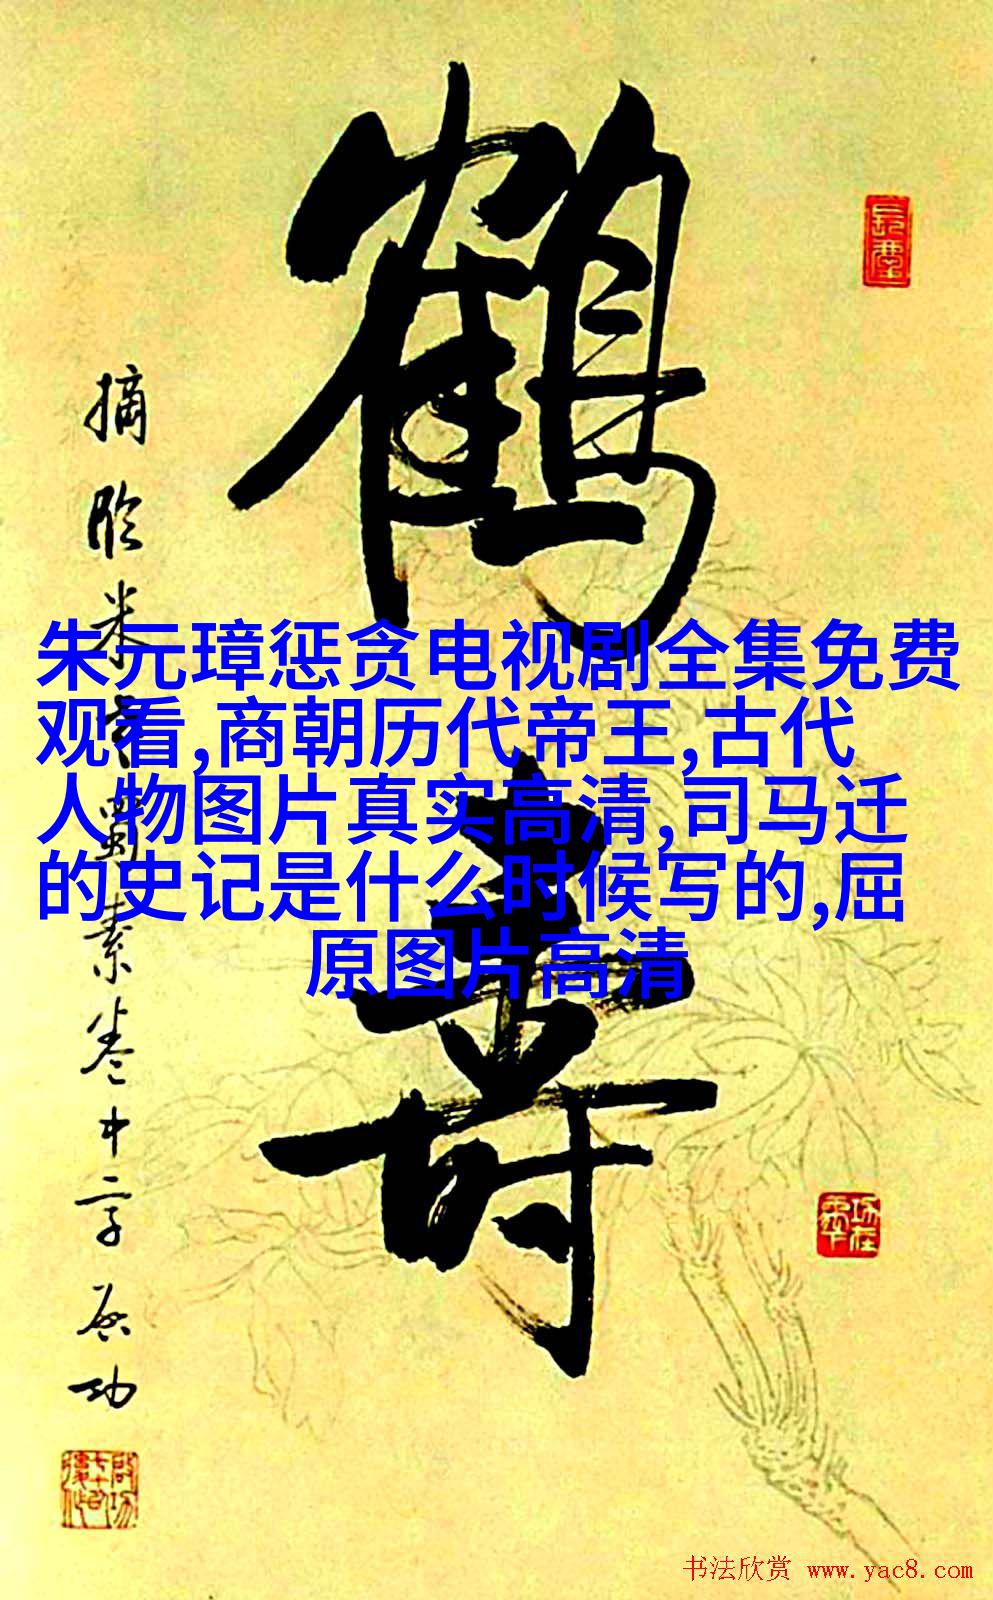 鹤寿
摘临米书蜀素卷中字 启功
朱元璋惩贪电视剧全集免费
观看,商朝历代帝王,古代
人物图片真实高清,司马迁
的史记是什么时候写的,屈
原图片高清
书法欣赏 www.yac8.com